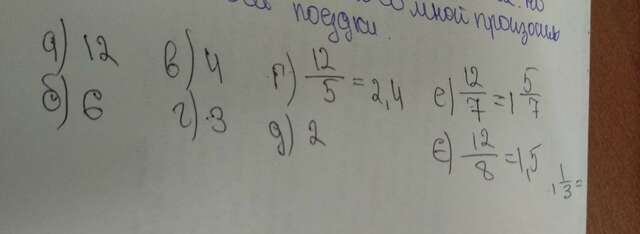 мной произошл
поездки.
а) 12
б) 6
в) 4
г) 3
г) 12/5 = 2,4
д) 2
е) 12/7 = 1 5/7
є) 12/8 = 1,5
1 1/3 =